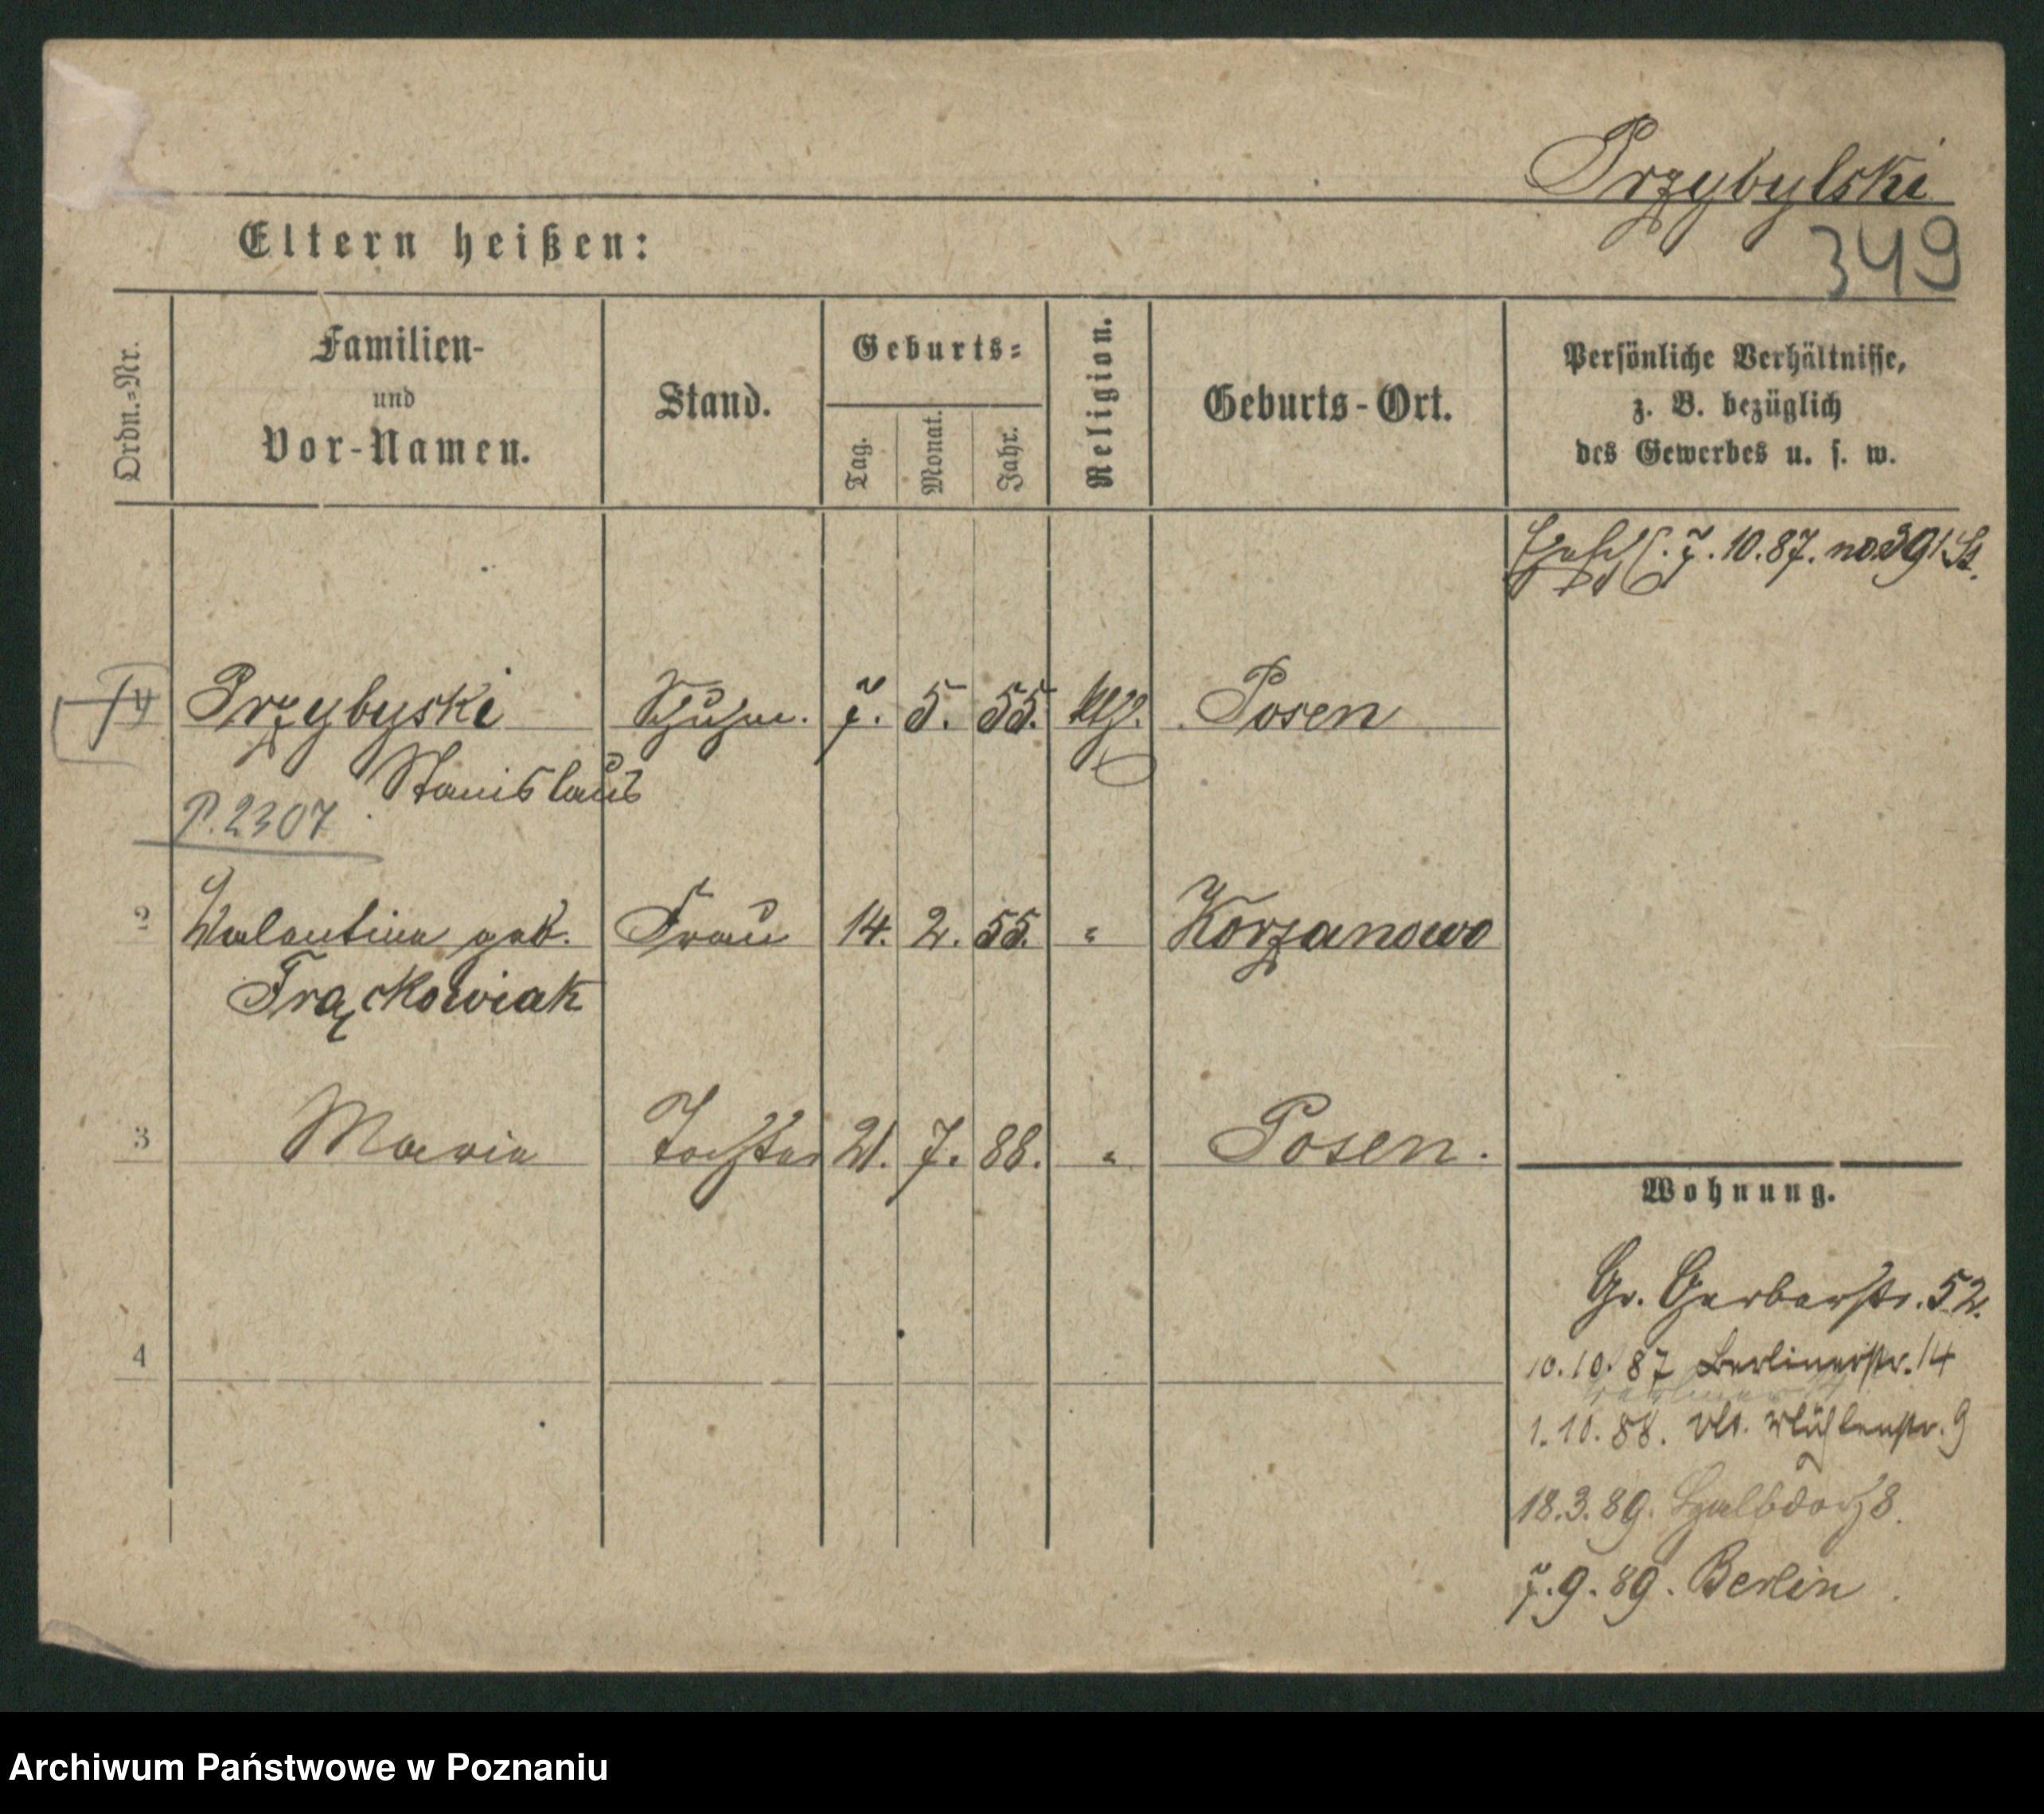 Przybylski
349
Eltern heißen:
Ordn.-Nr.
Familien-
und
Vor-Namen.
Stand.
Geburts-
Tag.
Monat.
Jahr.
Religion.
Geburts-Ort.
Persönliche Verhältnisse,
z. B. bezüglich
des Gewerbes u. s. w.
7.10.87. no 391
Przybyski 7. 5. 55. kth. Posen
Stanislaus
P. 2307
2 Walentina geb. Frau 14. 2. 55. " Korzanowo
Frąckowiak
3 Maria Tochter 21. 7. 88. " Posen.
4
Wohnung.
Gr. Gerberstr. 52.
10.10.87 Berlinerstr. 14
1.10.88. Mühlenstr. 9
18.3.89. 8.
7.9.89. Berlin
Archiwum Państwowe w Poznaniu